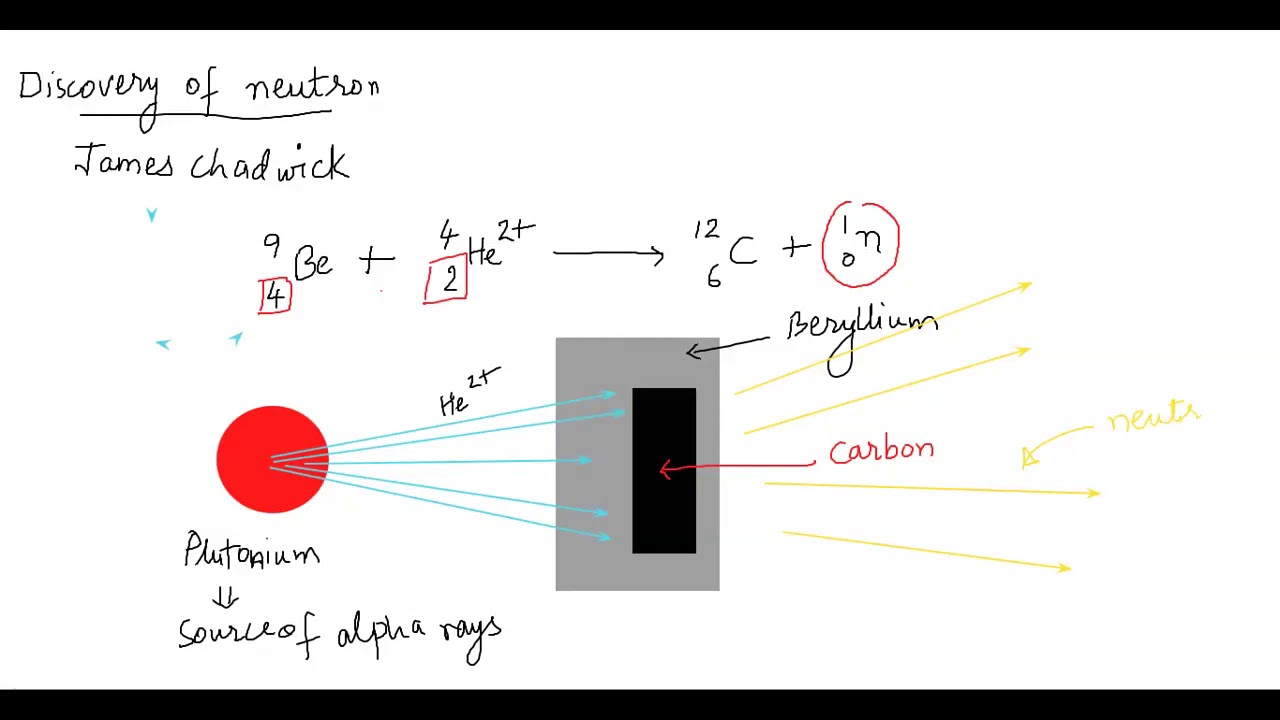 Discovery of neutron
James chadwick
⁹₄Be + ⁴₂He²⁺ ⟶ ¹²₆C + ¹₀n
Beryllium
He²⁺
neutr
Carbon
Plutonium
⇓
source of alpha rays